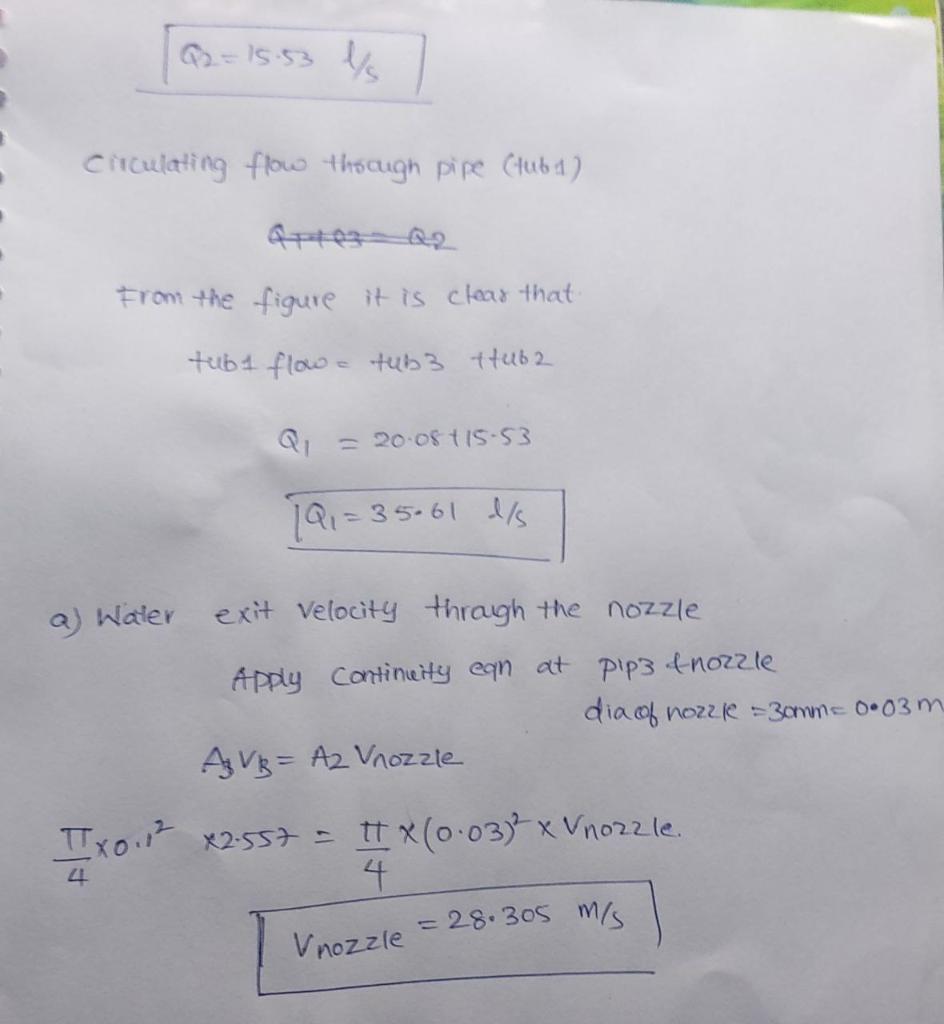 Q2 = 15.53 l/s
Circulating flow through pipe (tub1)
Q1+Q3 = Q2
From the figure it is clear that
tub1 flow = tub3 + tub2
Q1 = 20.08 + 15.53
Q1 = 35.61 l/s
a) Water exit velocity through the nozzle
Apply Continuity eqn at pip3 & nozzle
dia of nozzle = 30mm = 0.03 m
A3 V3 = A2 Vnozzle
π/4 × 0.1² × 2.557 = π/4 × (0.03)² × Vnozzle.
Vnozzle = 28.305 m/s